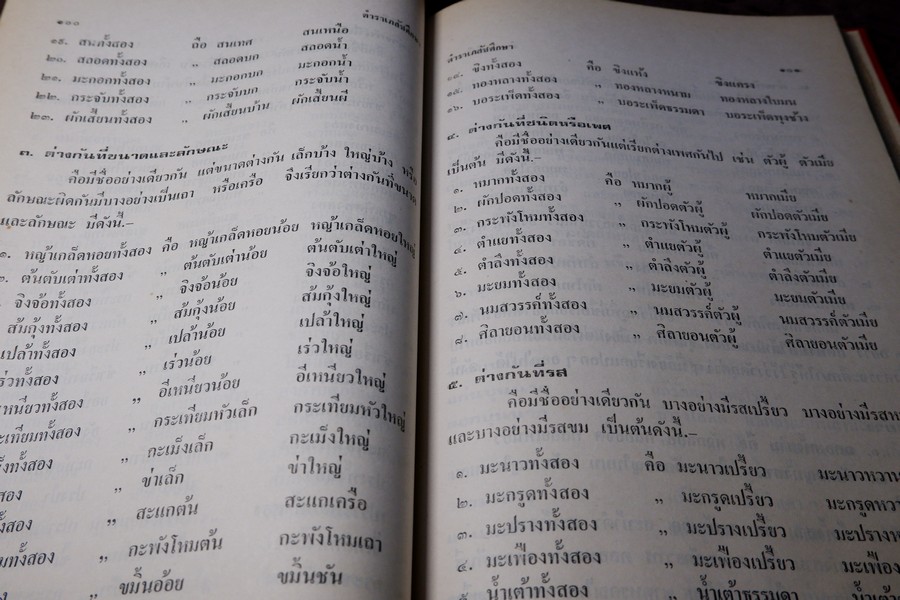 ๑๐๐
ตำราเภสัชศึกษา
๑๙. สนทั้งสอง ถือ สนเทศ สนเหนือ
๒๐. สลอดทั้งสอง " สลอดบก สลอดน้ำ
๒๑. มะกอกทั้งสอง " มะกอกบก มะกอกน้ำ
๒๒. กระจับทั้งสอง " กระจับบก กระจับน้ำ
๒๓. ผักเสี้ยนทั้งสอง " ผักเสี้ยนบ้าน ผักเสี้ยนผี
๓. ต่างกันที่ขนาดและลักษณะ
คือมีชื่ออย่างเดียวกัน แต่ขนาดต่างกัน เล็กบ้าง ใหญ่บ้าง หรือ
ลักษณะผิดกันมีบางอย่างเป็นเถา หรือเครือ จึงเรียกว่าต่างกันที่ขนาด
และลักษณะ มีดังนี้.–
๑. หญ้าเกล็ดหอยทั้งสอง คือ หญ้าเกล็ดหอยน้อย หญ้าเกล็ดหอยใหญ่
๒. ต้นตับเต่าทั้งสอง " ต้นตับเต่าน้อย ต้นตับเต่าใหญ่
จิงจ้อทั้งสอง " จิงจ้อน้อย จิงจ้อใหญ่
ส้มกุ้งทั้งสอง " ส้มกุ้งน้อย ส้มกุ้งใหญ่
เปล้าทั้งสอง " เปล้าน้อย เปล้าใหญ่
ร่วทั้งสอง " เร่วน้อย เร่วใหญ่
หนียวทั้งสอง " อีเหนียวน้อย อีเหนียวใหญ่
ะเทียมทั้งสอง " กระเทียมหัวเล็ก กระเทียมหัวใหญ่
ม็งทั้งสอง " กะเม็งเล็ก กะเม็งใหญ่
สอง " ข่าเล็ก ข่าใหญ่
ทั้งสอง " สะแกต้น สะแกเครือ
มทั้งสอง " กะพังโหมต้น กะพังโหมเถา
" ขมิ้นอ้อย ขมิ้นชัน
ตำราเภสัชศึกษา
๑๐๑
๑๔. ขิงทั้งสอง คือ ขิงแห้ง ขิงแครง
๑๕. ทองหลางทั้งสอง " ทองหลางหนาม ทองหลางใบมน
๑๖. บอระเพ็ดทั้งสอง " บอระเพ็ดธรรมดา บอระเพ็ดพุงช้าง
๔. ต่างกันที่ชนิดหรือเพศ
คือมีชื่ออย่างเดียวกันแต่เรียกต่างเพศกันไป เช่น ตัวผู้ ตัวเมีย
เป็นต้น มีดังนี้.–
๑. หมากทั้งสอง คือ หมากผู้ หมากเมีย
๒. ผักปอดทั้งสอง " ผักปอดตัวผู้ ผักปอดตัวเมีย
๓. กระพังโหมทั้งสอง " กระพังโหมตัวผู้ กระพังโหมตัวเมีย
๔. ตำแยทั้งสอง " ตำแยตัวผู้ ตำแยตัวเมีย
๕. ตำลึงทั้งสอง " ตำลึงตัวผู้ ตำลึงตัวเมีย
๖. มะยมทั้งสอง " มะยมตัวผู้ มะยมตัวเมีย
๗. นมสวรรค์ทั้งสอง " นมสวรรค์ตัวผู้ นมสวรรค์ตัวเมีย
๘. ศิลายอนทั้งสอง " ศิลายอนตัวผู้ ศิลายอนตัวเมีย
๕. ต่างกันที่รส
คือมีชื่ออย่างเดียวกัน บางอย่างมีรสเปรี้ยว บางอย่างมีรสห
และบางอย่างมีรสขม เป็นต้นดังนี้.–
๑. มะนาวทั้งสอง คือ มะนาวเปรี้ยว มะนาวหวาน
๒. มะกรูดทั้งสอง " มะกรูดเปรี้ยว มะกรูดหว
๓. มะปรางทั้งสอง " มะปรางเปรี้ยว มะปรางห
๔. มะเฟืองทั้งสอง " มะเฟืองเปรี้ยว มะเฟือง
๕. น้ำเต้าทั้งสอง " น้ำเต้าธรรมดา น้ำเต้า